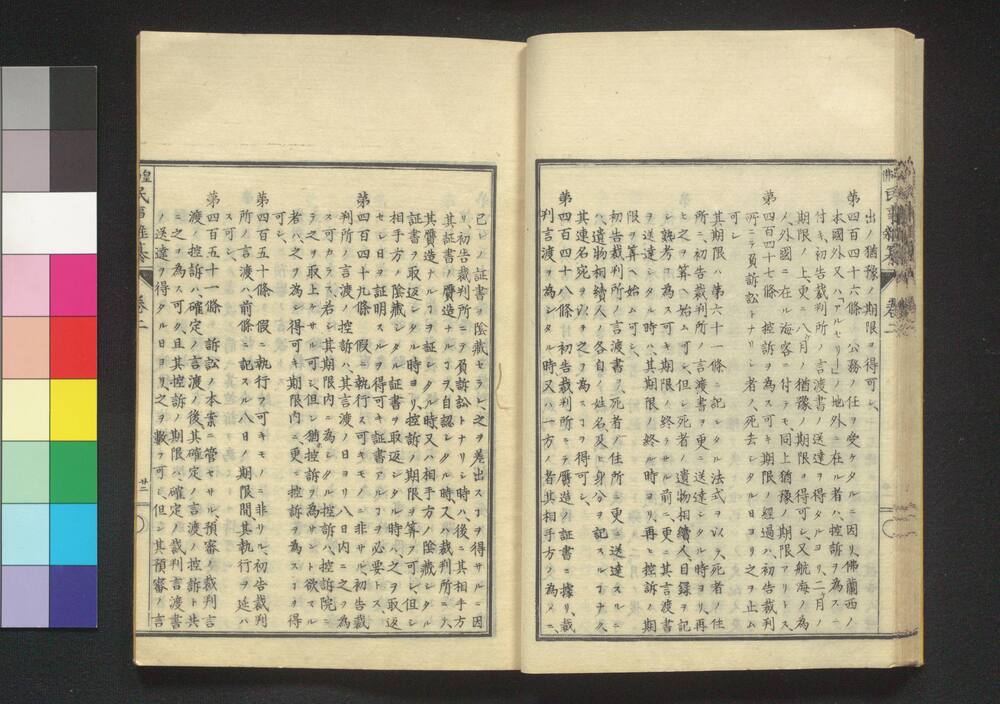 出ノ猶豫ノ期限ヲ得可シ
第四百四十六條 公務ノ任ヲ受ケタルニ因リ佛蘭西ノ
本國外又ハ「アルゼリー」ノ地外ニ在ル者ハ控訴ヲ為スニ
付キ初告裁判所ノ言渡書ノ送達ヲ得タルヨリ二月ノ
期限ノ上更ニ八月ノ猶豫ノ期限ヲ得可シ又航海ノ為
ノ外國ニ在ル海客ニ付テモ同上猶豫ノ期限アリトス
第四百四十七條 控訴ヲ為ス可キ期限ノ經過ハ初告裁判
所ニテ負訴訟トナリシ者ノ死去シタル日ヨリ之ヲ止ム
可シ
其期限ハ第六十一條ニ記シタル法式ヲ以テ死者ノ住
所ニ初告裁判所ノ言渡書ヲ更ニ送達シタル時ヨリ再
ヒ之ヲ算ヘ始ム可シ但シ死者ノ遺物相續人目録ヲ記
シ熟考ヲ為ス可キ期限ノ終ラサル前ニ更ニ其言渡書
ヲ送達シタル時ハ其期限ノ終ル時ヨリ再ヒ控訴ノ期
限ヲ算ヘ始ム可シ
初告裁判所ノ言渡書ヲ死者ノ住所ニ更ニ送達スルニ
ハ遺物相續人ノ各自ノ姓名及ヒ身分ヲ記スルヿナク
其連名宛ヲ以テ之ヲ為スヿヲ得可シ
第四百四十八條 初告裁判所ニテ贋造ノ証書ニ據リ裁
判言渡ヲ為シタル時又ハ一方ノ者其相手方ノ為メニ
己レノ証書ヲ陰藏セラレ之ヲ差出スヿヲ得サルニ因
リ初告裁判所ニテ負訴訟トナリシ時ハ後ニ其相手方
其証書ノ贋造ナルヿヲ自認シタル時又ハ裁判所ニテ
其贋造ナルヿヲ証シタル時又ハ相手方ノ陰藏シタル
証書ヲ取返シタル時ヨリ控訴ノ期限ヲ算フ可シ但シ
相手方ノ陰藏シタル証書ヲ取返シタル時ハ之ヲ取返
セシ日ヲ証明スルヲ得可キ証書アルヿヲ必要トス
第四百四十九條 假ニ執行ス可キモノニ非サル初告裁
判所ノ言渡ノ控訴ハ其言渡ノ日ヨリ八日内ニ之ヲ為
ス可カラス若シ其期限内ニ為シタル控訴ハ控訴院ニ
テ之ヲ取上ケサル可シ但シ猶控訴ヲ為サント欲スル
者ハ之ヲ為シ得可キ期限内ニ更ニ控訴ヲ為スヿヲ得
可シ
第四百五十條 假ニ執行ス可キモノニ非サル初告裁判
所ノ言渡ハ前條ニ記スル八日ノ期限間其執行ヲ延ハ
ス可シ
第四百五十一條 訴訟ノ本案ニ管セサル預審ノ裁判言
渡ノ控訴ハ確定ノ言渡ノ後其確定ノ言渡ノ控訴ト共
ニ之ヲ為ス可ク且其控訴ノ期限ハ確定ノ裁判言渡書
ノ送達ヲ得タル日ヨリ之ヲ數フ可シ但シ其預審ノ言
民事
卷二
廿二